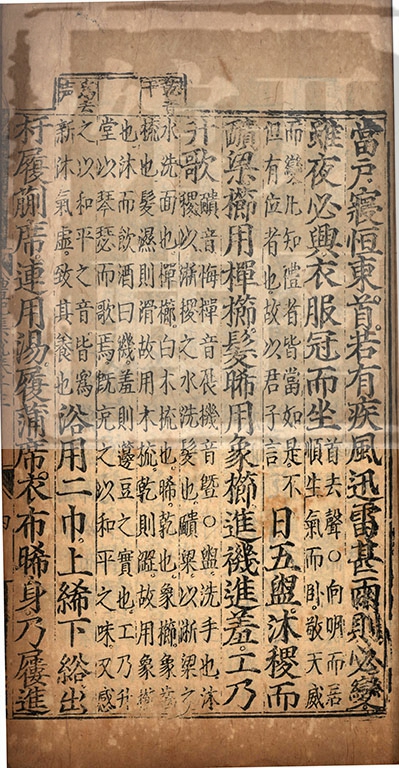 當戶寢恒東首若有疾風迅雷甚雨則必變
雖夜必興衣服冠而坐
首去聲○向明而居
順生氣而卧敬天威
而變凡知禮者皆當如是不
但有位者也故以君子言
日五盥沐稷而
靧梁櫛用樿櫛髮晞用象櫛進禨進羞工乃
升歌
靧音悔樿音展禨音曁○盥洗手也沐
稷以淅稷之水洗髮也靧梁以淅梁之
乾音
干
水洗面也樿櫛白木梳也晞乾也象櫛象齒
梳也髮濕則滑故用木梳乾則澀故用象櫛
也沐而飲酒曰禨羞則籩豆之實也工乃升
堂以琴瑟而歌焉旣充之以和平之味又感
爲去
声
之以和平之音皆爲
新沐氣虛致其養也
浴用二巾上絺下綌出
杅履蒯席連用湯履蒲席衣布晞身乃屨進